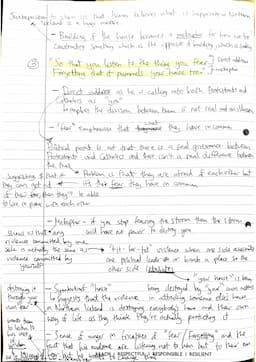 Juxtaposition to show us that Heaney believes what is happening in Northern
Ireland is a huge mistake
- Building of the house becomes a metaphor for how war
constructs something which is the opposite of building, which is
"So that you listen to the thing you fear
Forgetting that it pummels your house too."
Direct address
metaphor
- Direct address as he is calling into both Protestants and
Catholics as "you"
- implies the division between them is not real and
- "fear" emphasises that what they have in common
- Political point is not that there is a real grievance between
Protestants and Catholics and there isn't a real difference between
the two
Suggesting if that
they can get rid
of their fear, then they'll be able
to live in peace with each other
- Problem is that they are afraid of each other but
it's this fear they have in common
- Metaphor - if you stop fearing the storm then the storm
will have no power to destroy you
Shows us that any
violence committed by one
side is actually the same as
violence committed by
yourself
- "tit-for-tat" violence when one side assassinates
one political leader or bombs a place so the
other side retaliates
- Symbolism: "house" being destroyed by "your" own actions
"your house" is
- Suggests that the violence in attacking someone else's house
in Northern Ireland is destroying everybody's home and their own
way of life as they think they're actually protecting it
destroying it
through your
own
- Sense of anger in repetition of "fear"/forgetting and the
fact that his audience are listening not to him but to their own
to listen to
his
READY | RESPECTFUL | RESPONSIBLE | RESILIENT